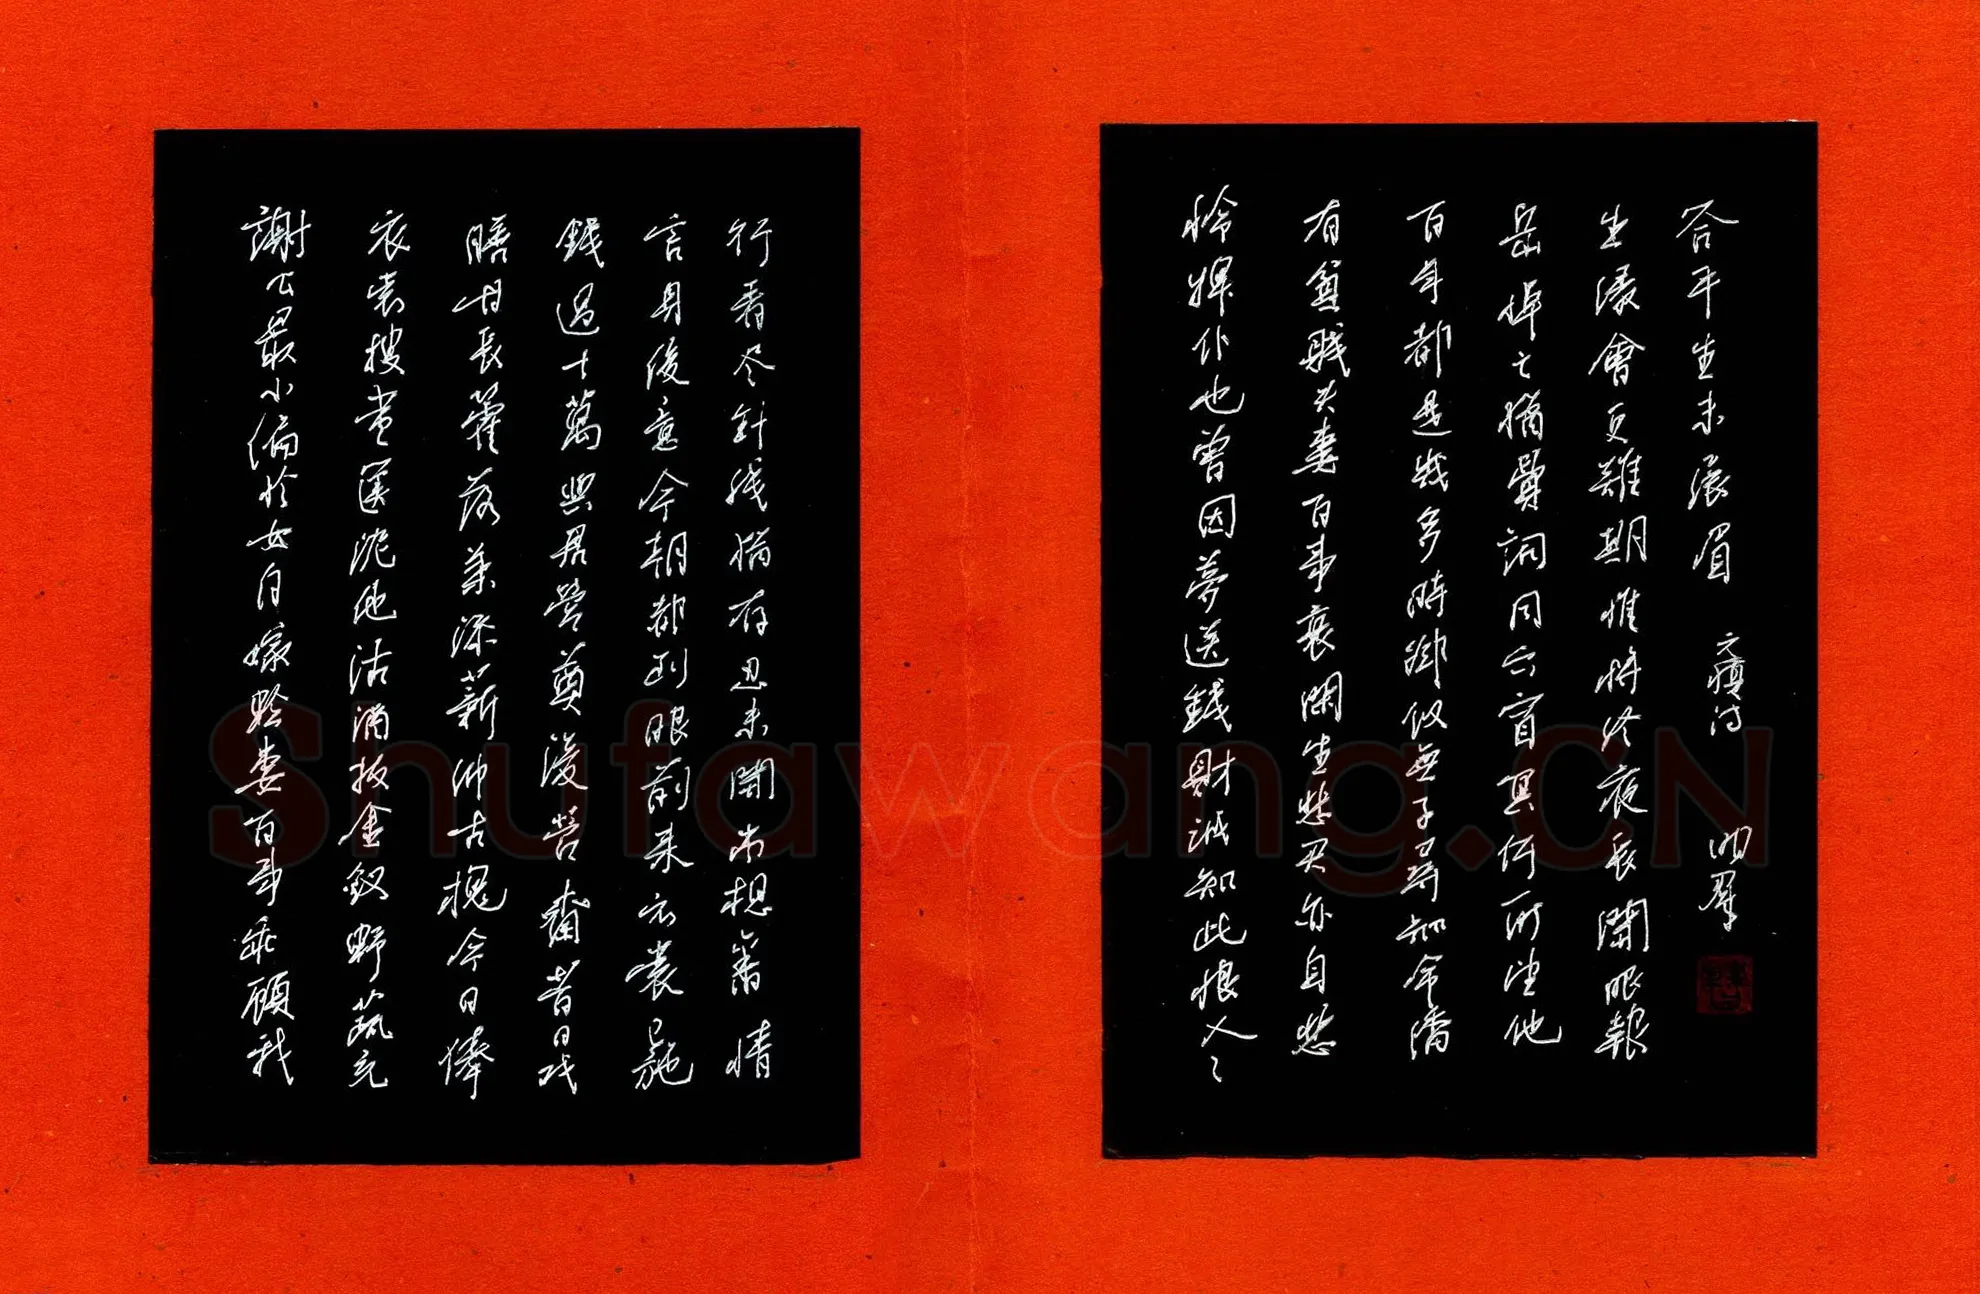 謝公最小偏於女自嫁黔婁百事乖顧我
衣裳搜盡篋泥他沽酒拔金釵野蔬充
膳甘長藿落葉添薪仰古槐今日俸
錢過十萬與君營奠復營齋昔日戏
言身後意今朝都到眼前来衣裳已施
行看尽針线猶存忍未開尚想舊情
怜婢仆也曾因夢送錢財誠知此恨人々
有貧賤夫妻百事哀閑坐悲君亦自悲
百年都是幾多時鄧攸無子尋知命潘
岳悼亡猶費詞同穴窅冥何所望他
生缘會更難期惟將终夜長開眼報
答平生未展眉 元稹诗 明群
Shufawang.CN